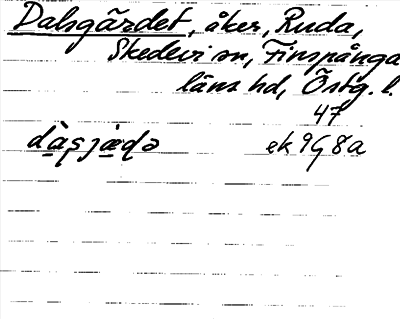 Dalsgärdet, åker, Ruda,
Skedevi sn, Finspånga
läns hd, Östg. l.
47
dàʂjæ̀ɖə ek 9G 8a